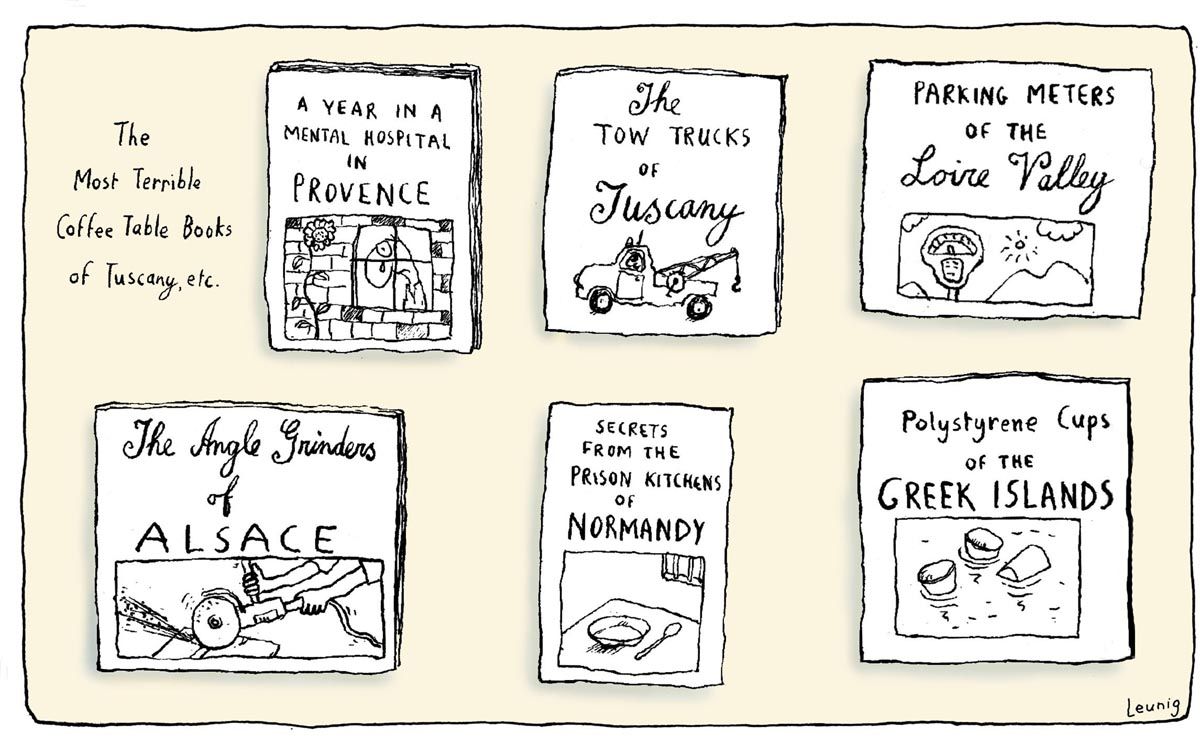 The
Most Terrible
Coffee Table Books
of Tuscany, etc.
A YEAR IN A
MENTAL HOSPITAL
IN
PROVENCE
The
TOW TRUCKS
OF
Tuscany
PARKING METERS
OF THE
Loire Valley
The Angle Grinders
of
ALSACE
SECRETS
FROM THE
PRISON KITCHENS
OF
NORMANDY
Polystyrene Cups
OF THE
GREEK ISLANDS
Leunig